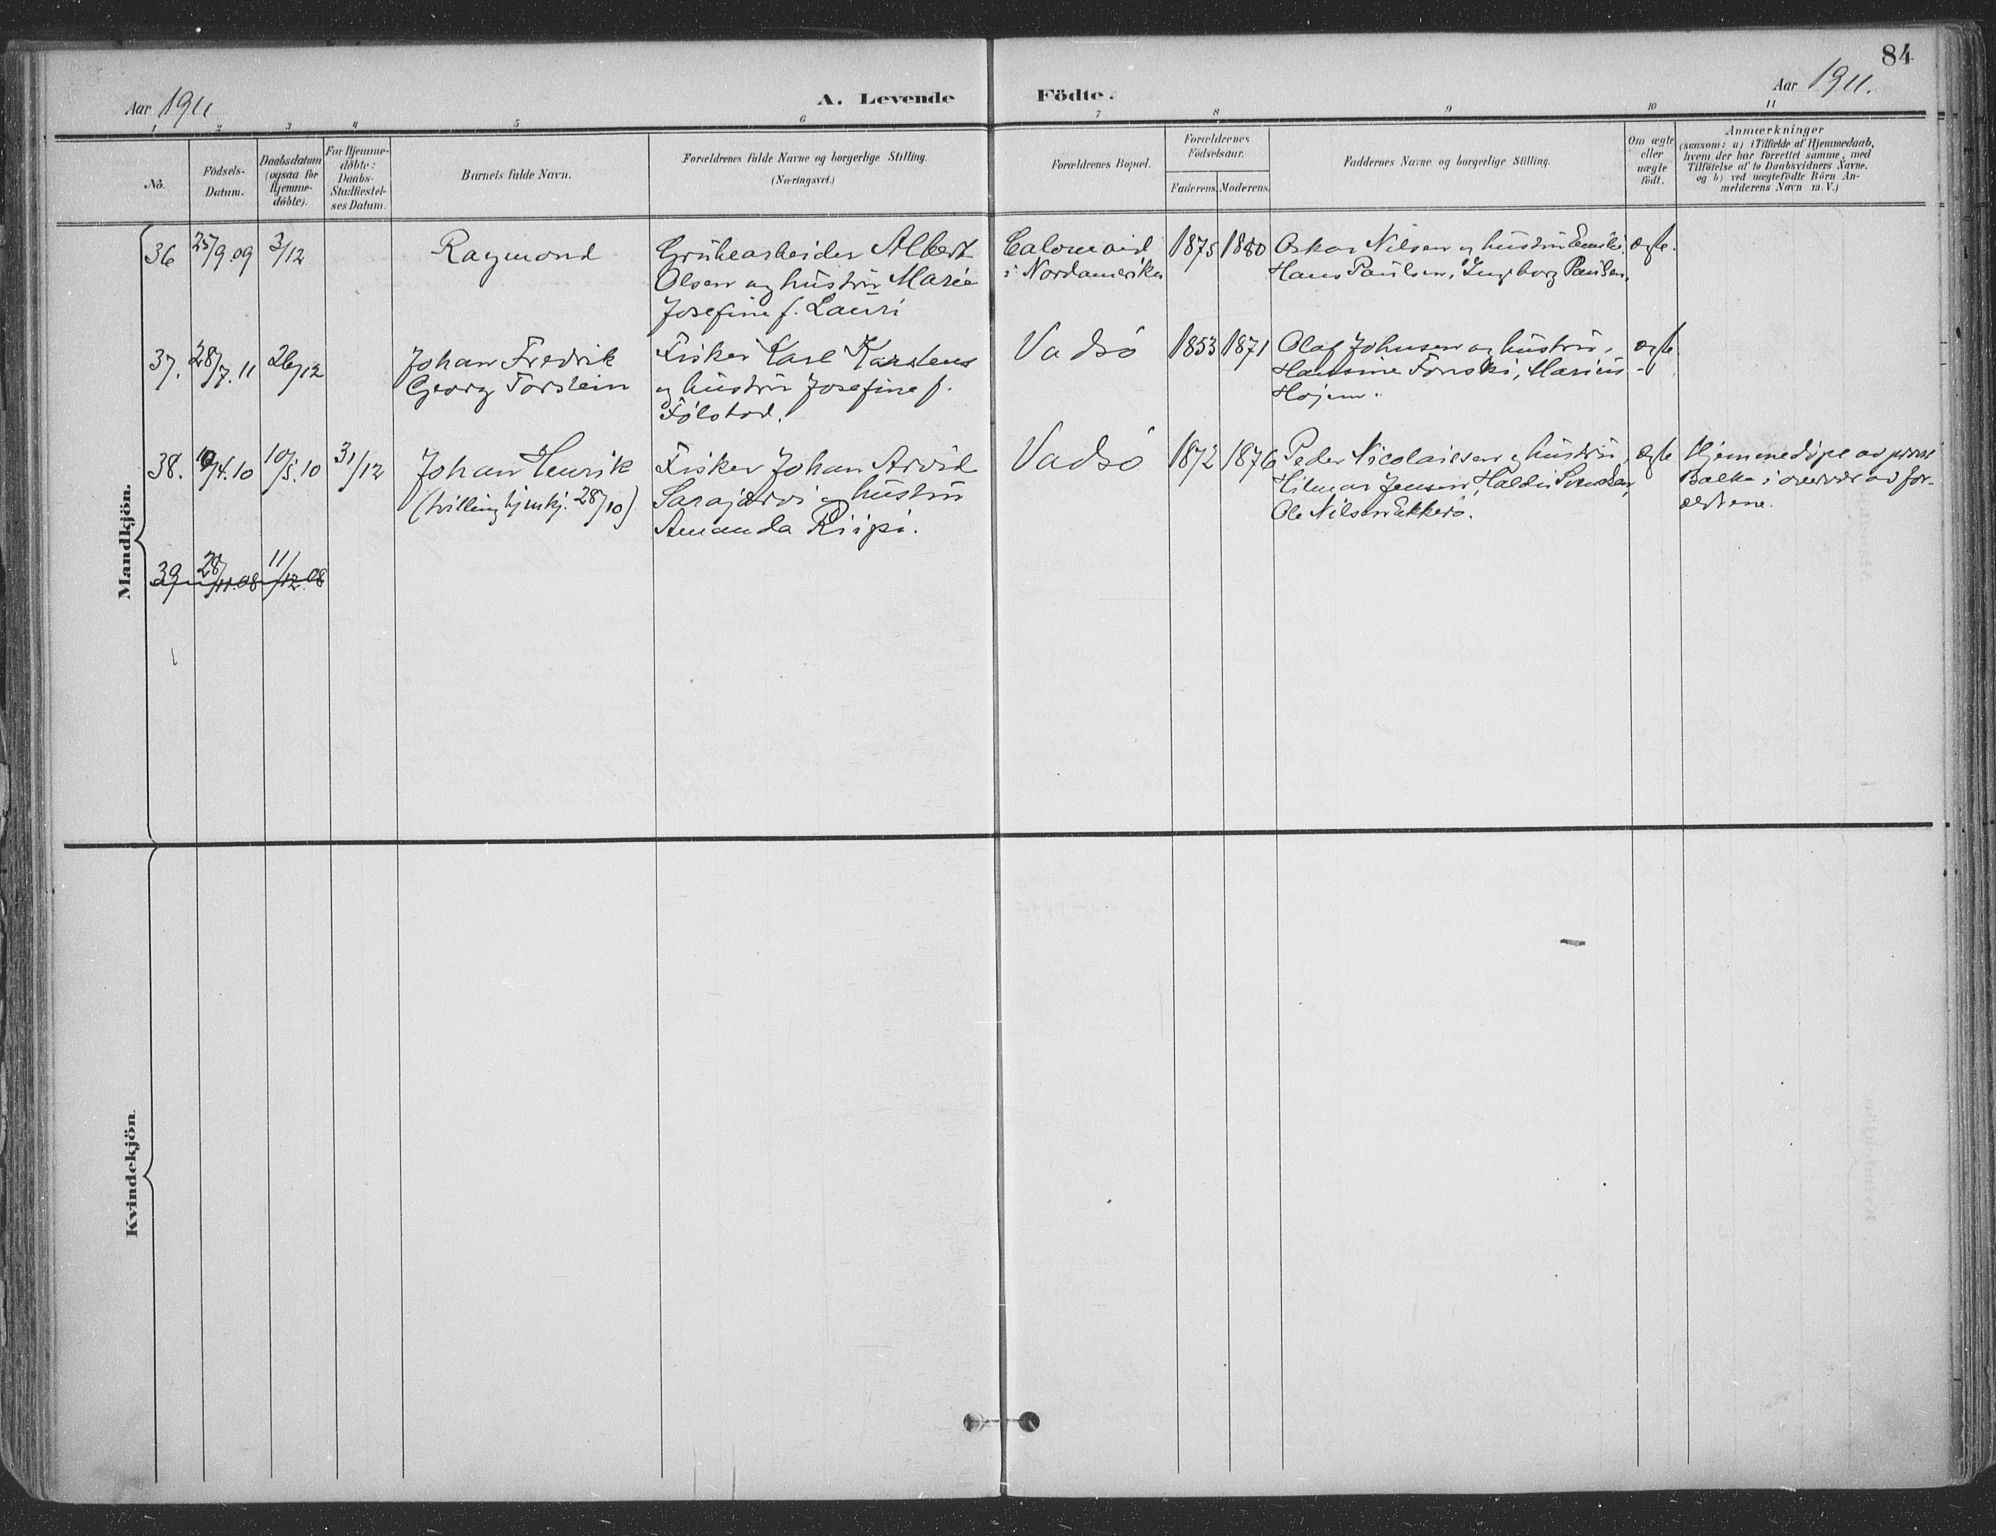 84
Aar 1911
A. Levende
Födte.
Aar 1911.
1 2 3 4 5 6 7 8 9 10 11
No.
Födsels-
Datum.
Daabsdatum
(ogsaa for
Hjemme-
döbte).
For Hjemme-
döbte:
Daabs-
Stadfæstel-
ses Datum.
Barnets fulde Navn.
Forældrenes fulde Navne og borgerlige Stilling.
(Næringsvei.)
Forældrenes Bopæl.
Forældrenes
Födselsaar.
Faderens. Moderens.
Faddernes Navne og borgerlige Stilling.
Om ægte
eller
uægte
födt.
Anmærkninger
(saasom: a) i Tilfælde af Hjemmedaab,
hvem der har forrettet samme, med
Tilföielse af to Daabsvidners Navne.
og b) ved uægtefödte Börn An-
melderens Navn m. V.)
Mandkjön.
36 25/9.09 3/12
Raymond
Grubearbeider Albert
Olsen og hustru Marie
Josefine f. Lauri
i Nordamerika
1875 1880
Oskar Nilsen og hustru Emilie
Hans Paulsen, Ingeborg Paulsen.
ægte.
37. 28/7.11 26/12
Johan Fredrik
Georg Torstein
Fisker Karl Karstens
og hustru Josefine f.
Følstad.
Vadsö
1853 1871
Olaf Johnsen og hustru,
Hansine Forski, Marius
Højem.
ægte
38. 10/4.10 10/5.10 31/12
Johan Henrik
(tvilling hjmkj. 28/10)
Fisker Johan Arvid
Sarajærvi og hustru
Amanda Riipi.
Vadsö
1872 1876
Peder Nicolaisen og hustru,
Hilmar Jensen, Haldis Svendsen,
Ole Nilsen Ekkerö.
ægte
Hjemmedöpt av provst
Balke i overvær av for-
ældrene.
39 28/11.08 11/12.08
Kvindekjön.